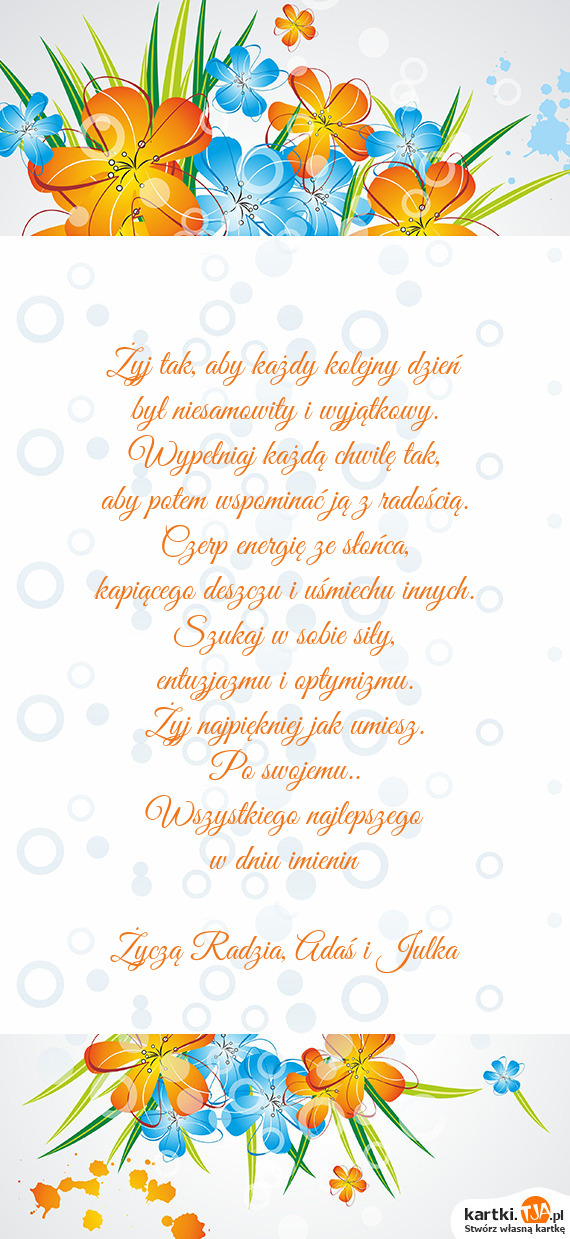 Żyj tak, aby każdy kolejny dzień
był niesamowity i wyjątkowy.
Wypełniaj każdą chwilę tak,
aby potem wspominać ją z radością.
Czerp energię ze słońca,
kapiącego deszczu i uśmiechu innych.
Szukaj w sobie siły,
entuzjazmu i optymizmu.
Żyj najpiękniej jak umiesz.
Po swojemu..
Wszystkiego najlepszego
w dniu imienin
Życzą Radzia, Adaś i Julka
kartki.TJA.pl
Stwórz własną kartkę